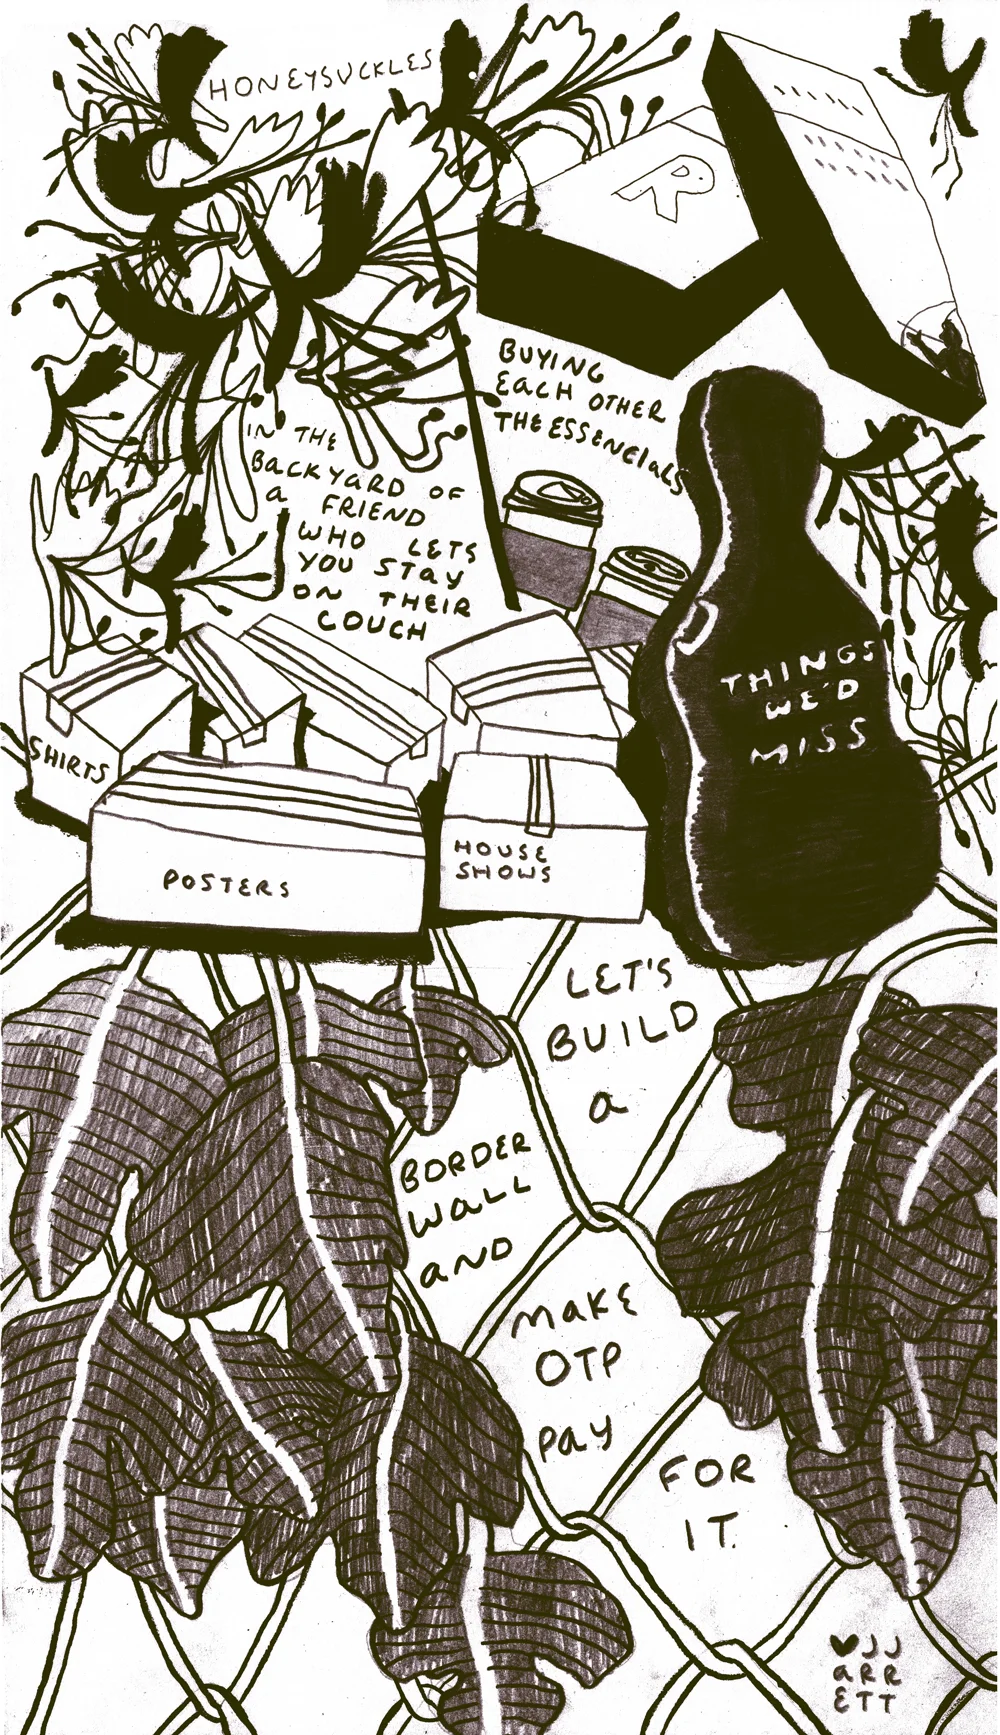 HONEYSUCKLES
R
BUYING
EACH OTHER
THE ESSENCIALS
IN THE
BACKYARD OF
A FRIEND
WHO LETS
YOU STAY
ON THEIR
COUCH
THINGS
WE'D
MISS
SHIRTS
POSTERS
HOUSE
SHOWS
LET'S
BUILD
a
BORDER
WALL
AND
MAKE
OTP
PAY
FOR
IT.
♥JJ
ARR
ETT